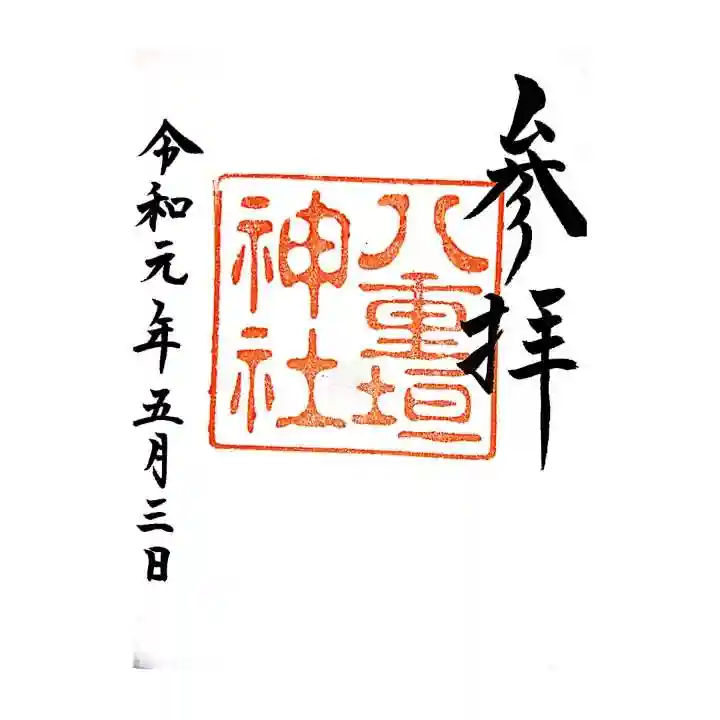 参拝
八重垣
神社
令和元年五月三日